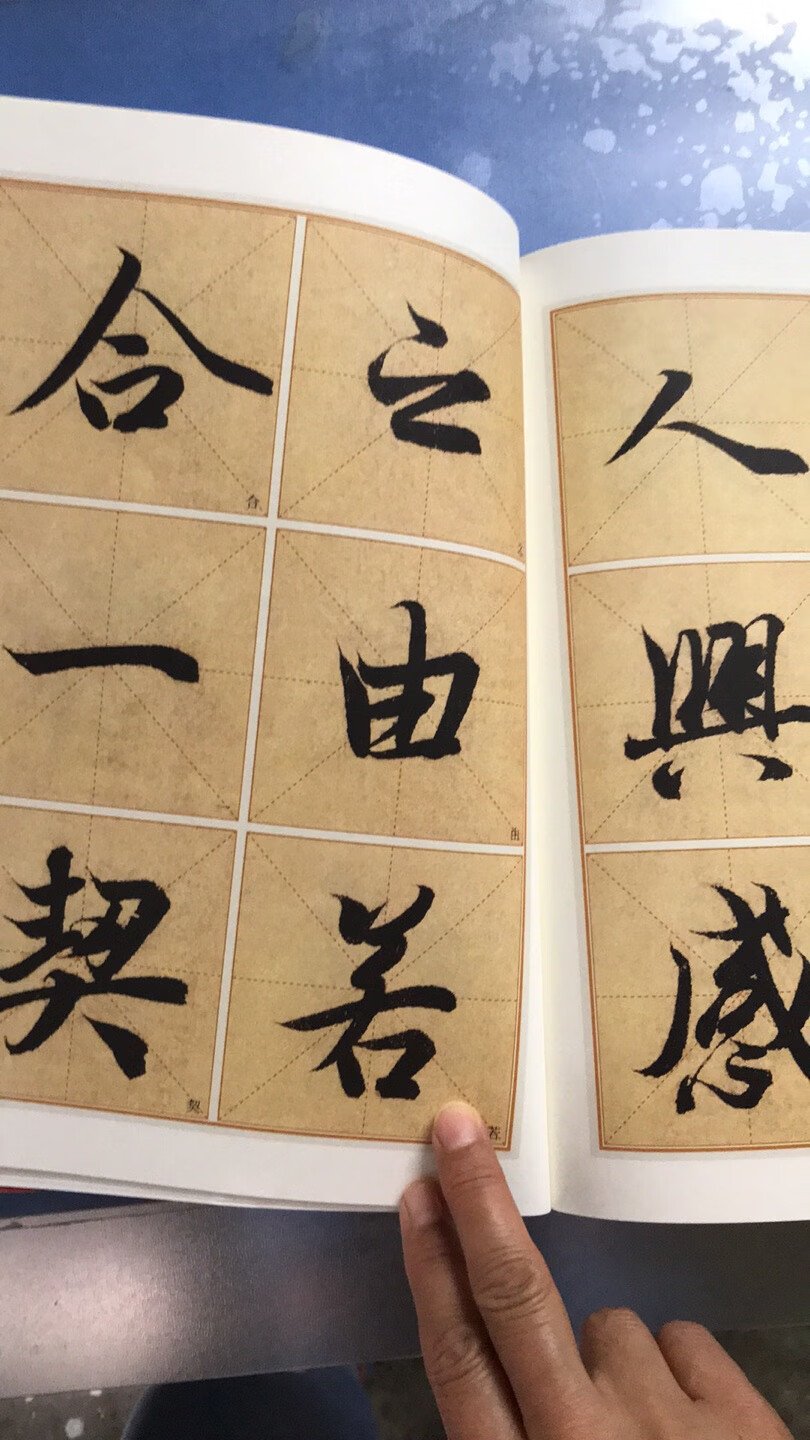 人興感
之由若
合一契
由
若
合
契